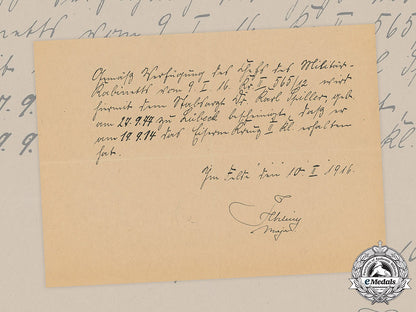 Gemäß Verfügung des Chefs des Militär-
Kabinetts vom 9. I. 16. Nr I 565/ wird
hiermit dem Stabsarzt Dr. Karl Spiller, geb.
am 27.9.77 zu Lübeck bescheinigt, daß er
am 19.9.14 das Eiserne Kreuz II Kl. erhalten
hat.
Im Felde den 10 I 1916.
Major
eMedals